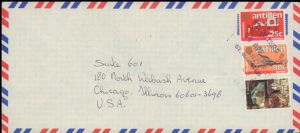 antillen
25c
antillen
Suite 601
180 North Wabash Avenue
Chicago, Illinois 60601-3698
U.S.A.